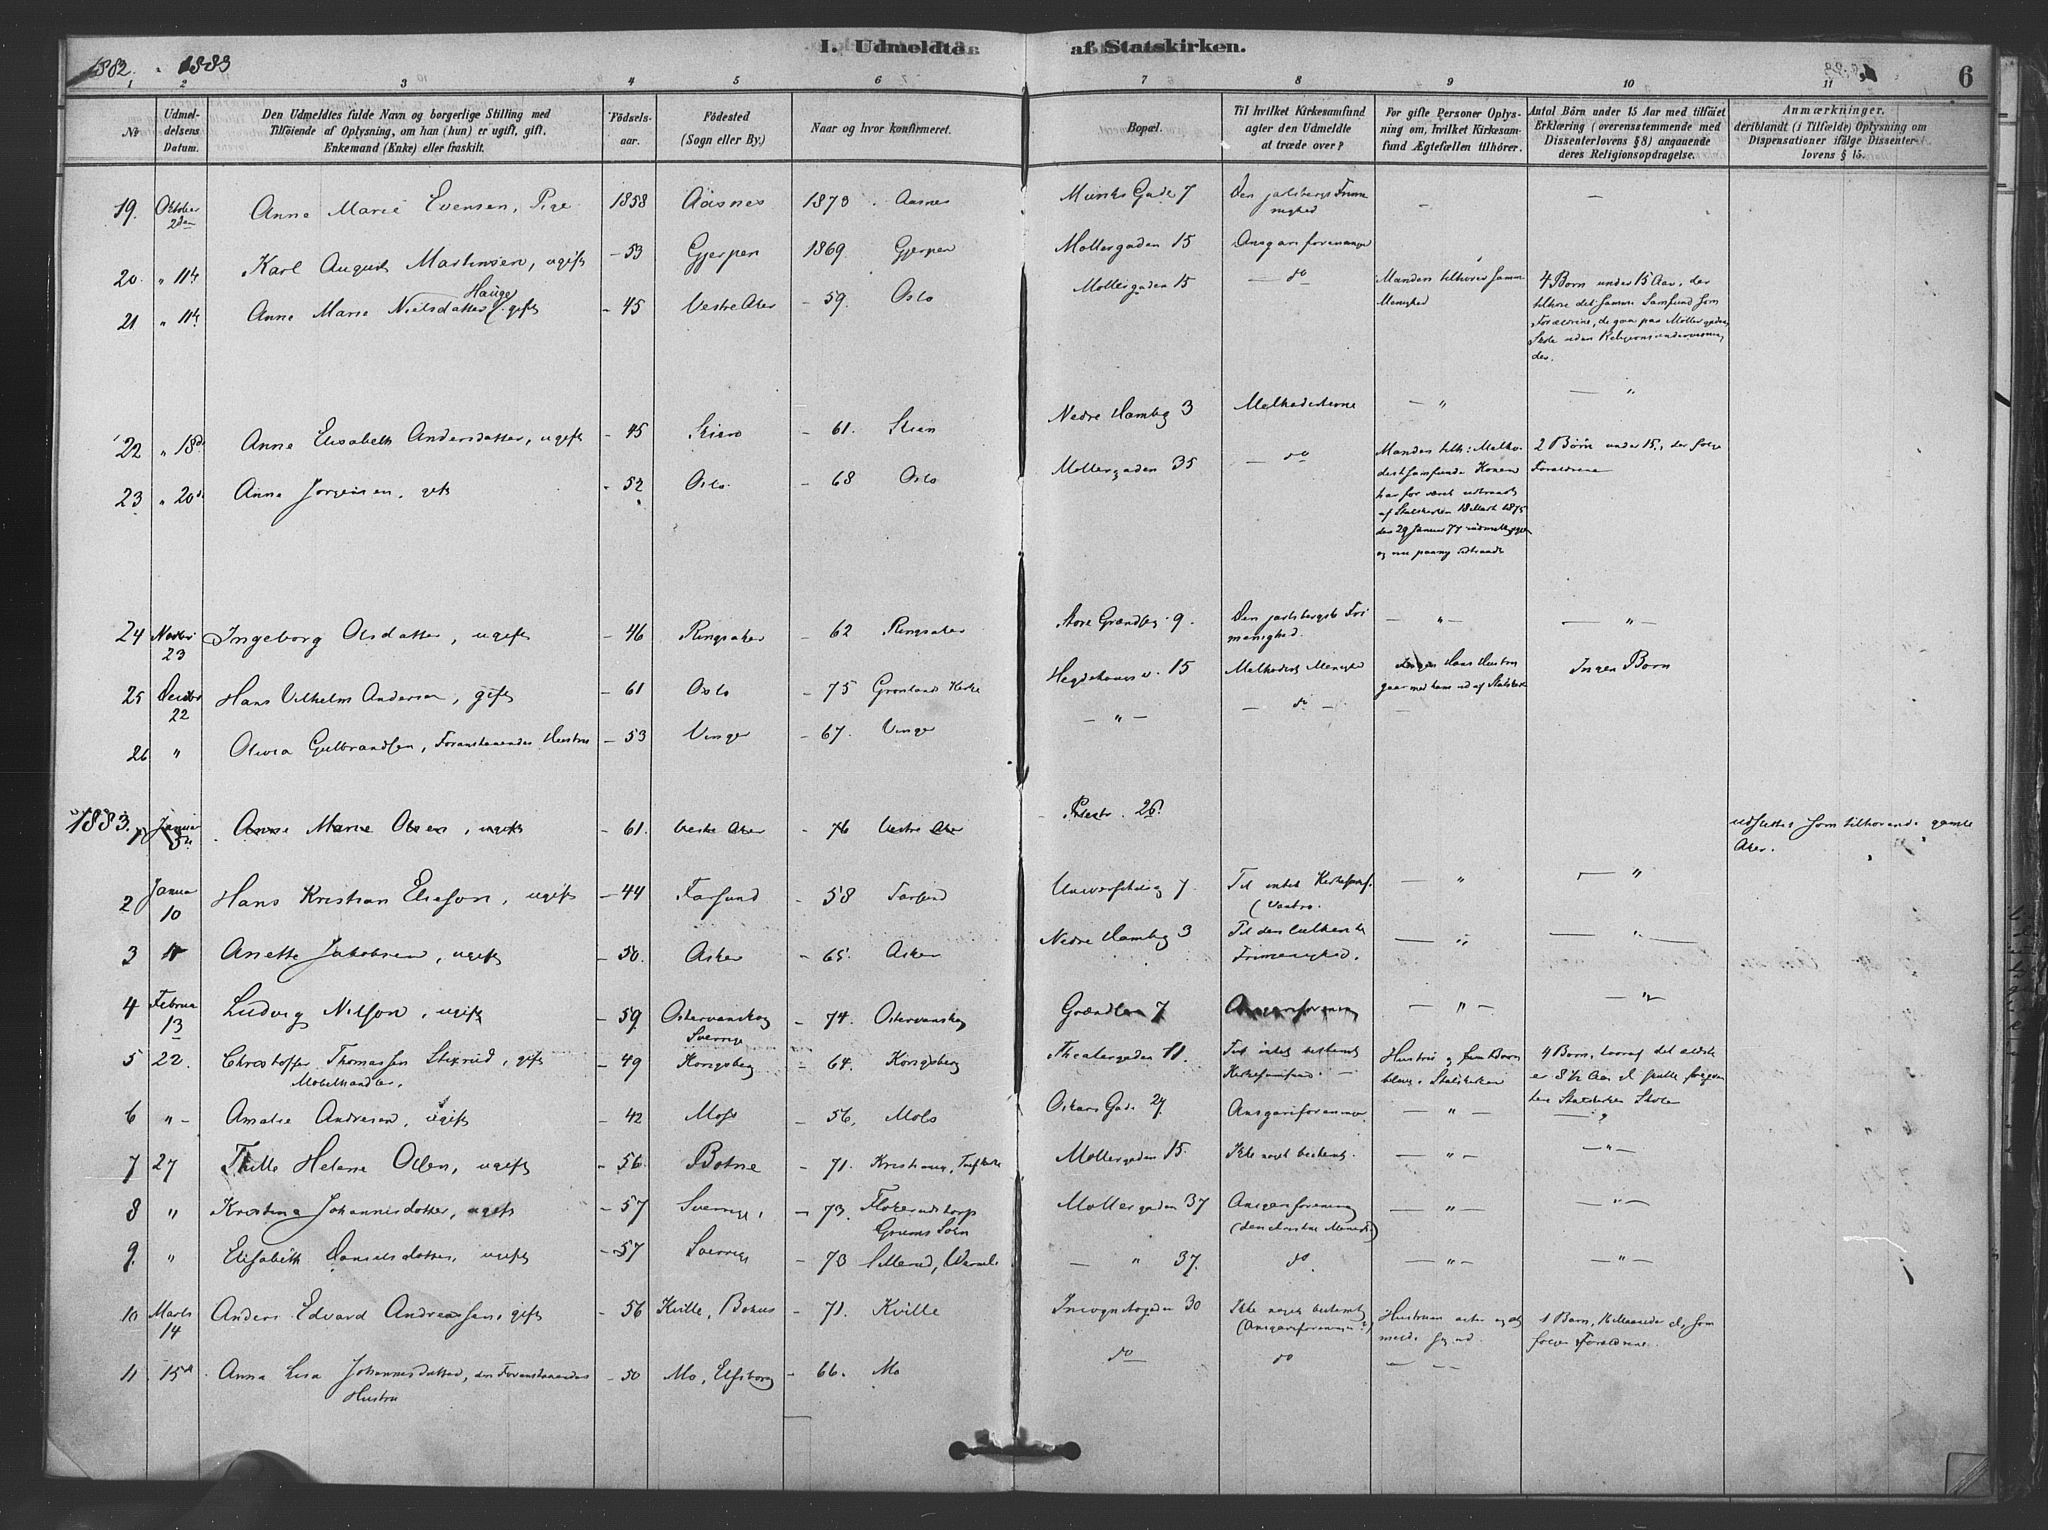 I. Udmeldte af Statskirken.
1882. 1883
6
1 2 3 4 5 6 7 8 9 10 11
No
Udmeldelsens Datum.
Den Udmeldtes fulde Navn og borgerlige Stilling med Tilföiende af Oplysning, om han (hun) er ugift, gift, Enkemand (Enke) eller fraskilt.
Födselsaar.
Födested (Sogn eller By.)
Naar og hvor konfirmeret.
Bopæl.
Til hvilket Kirkesamfund agter den Udmeldte at træde over?
For gifte Personer Oplysning om, hvilket Kirkesamfund Ægtefællen tilhörer.
Antal Börn under 15 Aar med tilföiet Erklæring (overensstemmende med Dissenterlovens § 8) angaaende deres Religionsopdragelse.
Anmærkninger, deriblandt (i Tilfælde) Oplysning om Dispensationer ifölge Dissenterlovens § 15.
19. Oktober 2den Anne Marie Evensen, Pige 1858 Aasnes 1873 Aasnes Munks Gade 7 Den jarlsbergs Frimenighed — —
20. " 11te Karl August Martinsen, ugift - 53 Gjerpen 1869 Gjerpen Møllergaden 15 Ansgariforeningen
21 " 11te Anne Marie Nielsdatter Hauge, gift - 45 Vestre Aker - 59. Oslo Møllergaden 15 — do — Manden tilhører samme Menighed 4 Børn under 15 Aar, der tilhøre det samme Samfund som Forældrene, de gaa paa Møllergadens Skole uden Religionsundervisning der.
22 " 18de Anne Elisabeth Andersdatter, ugift - 45 Skien - 61. Skien Nedre Hambg 3 Methodisterne — " — "
23 " 20de Anne Jørgensen, gift - 52 Oslo - 68 Oslo Møllergaden 35 — do Manden tilh: Methodistsamfundet Konen har før været udtraadt af Statskirken 18 Marts 1875 den 29 Januar 77 indmeldt igjen og nu paany udtraadt 2 Børn under 15, der følge Forældrene
24 Novbr 23 Ingeborg Olsdatter, ugift - 46 Ringsaker - 62 Ringsaker Store Grændseg. 9. Den jarlsbergske Frimenighed. — " — — " —
25 Decbr 22 Hans Vilhelm Andersen, gift - 61 Oslo - 75 Grønlands Kirke Hegdehaugsv. 15 Methodist Menighed Hans Hustru gaar med ham ud af Statskirken Ingen Børn
26 " Olivia Gulbrandsen, Foranstaaendes Hustru - 53 Vinger - 67. Vinger — " — — do —
1883. 1 Januar 5te Anne Marie Olsen, ugift - 61. Vestre Aker - 76 Vestre Aker Pilestr. 26. udsættes som tilhørende gamle Aker.
2 Janua 10 Hans Kristian Eliasson, ugift - 44 Farsund - 58 Farsund Universitetsg 7. Til intet Kirkesamf. — " — "
3 " Anette Jakobsen, ugift - 50. Asker - 65. Asker Nedre Hambg 3 Til den lutherske Frimenighed. — " — " —
4 Februa 13 Ludvig Nilson, ugift - 59 Østervanskog Sverrige - 74. Østervanskog Grændsen 7 Ansgariforening — " — — " —
5 22. Christoffer Thomassen Stixrud, gift Møbelhandler. - 49 Kongsberg - 64. Kongsberg Theatergaden 11. Til intet bestemt Kirkesamfund. — Hustru og Børn bliver i Statskirken 4 Børn, hvoraf det ældste er 8½ Aar
6 " - Amalie Andresen, ugift - 42 Moss - 56. Moss Oskars Gade 27. Ansgariforening — " — — "
7 27 Helene Olsen, ugift - 56. Botne - 71. Kristiania, Møllergaden 15. Ikke noget bestemt. — " — — " —
8 " Kristina Johannisdotter, ugift - 57 Sverrige, - 73. Grums Sokn Møllergaden 37 Ansgariforening — " — — " —
9. " Elisabeth Danielsdotter, ugift - 57 Sverrige - 73 Sillerud, Wermland — " 37. do. — " — — " —
10 Marts 14 Anders Edvard Andreassen, gift - 56 Kville, Bohus - 71. Kville Incognitogaden 30 Ikke noget bestemt (Ansgariforeningen?) Hustruen agter og at melde sig ud. 1 Barn, 16 Maaneder gl, som følger Forældrene.
11 15de Anna Lisa Johannesdotter, den Foranstaaendes Hustru - 50 Mo, Elfsborg - 66. Mo do — do — —